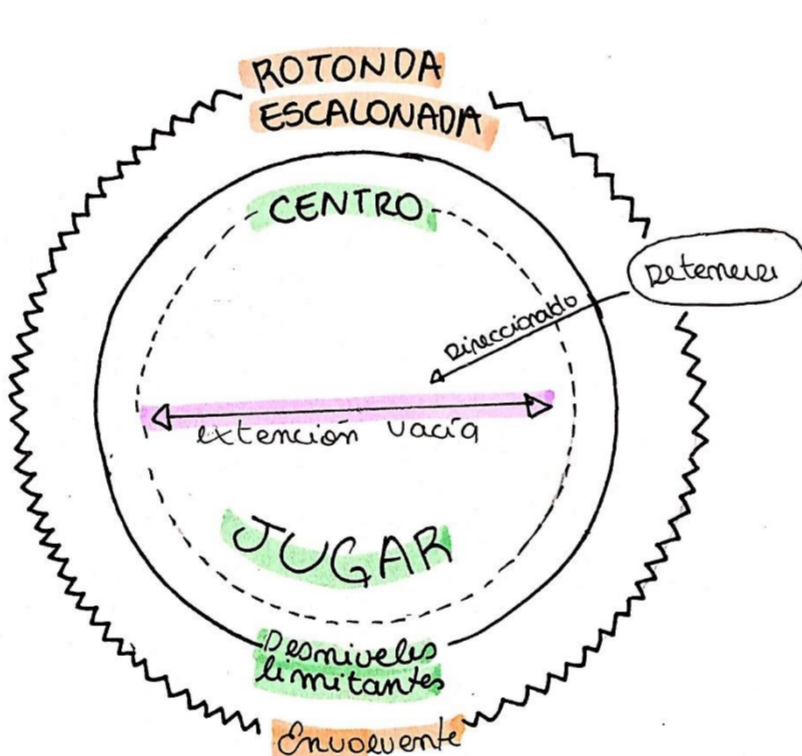 ROTONDA
ESCALONADA
CENTRO
Detenerse
Direccionado
extención vacía
JUGAR
Desniveles
limitantes
Envolvente